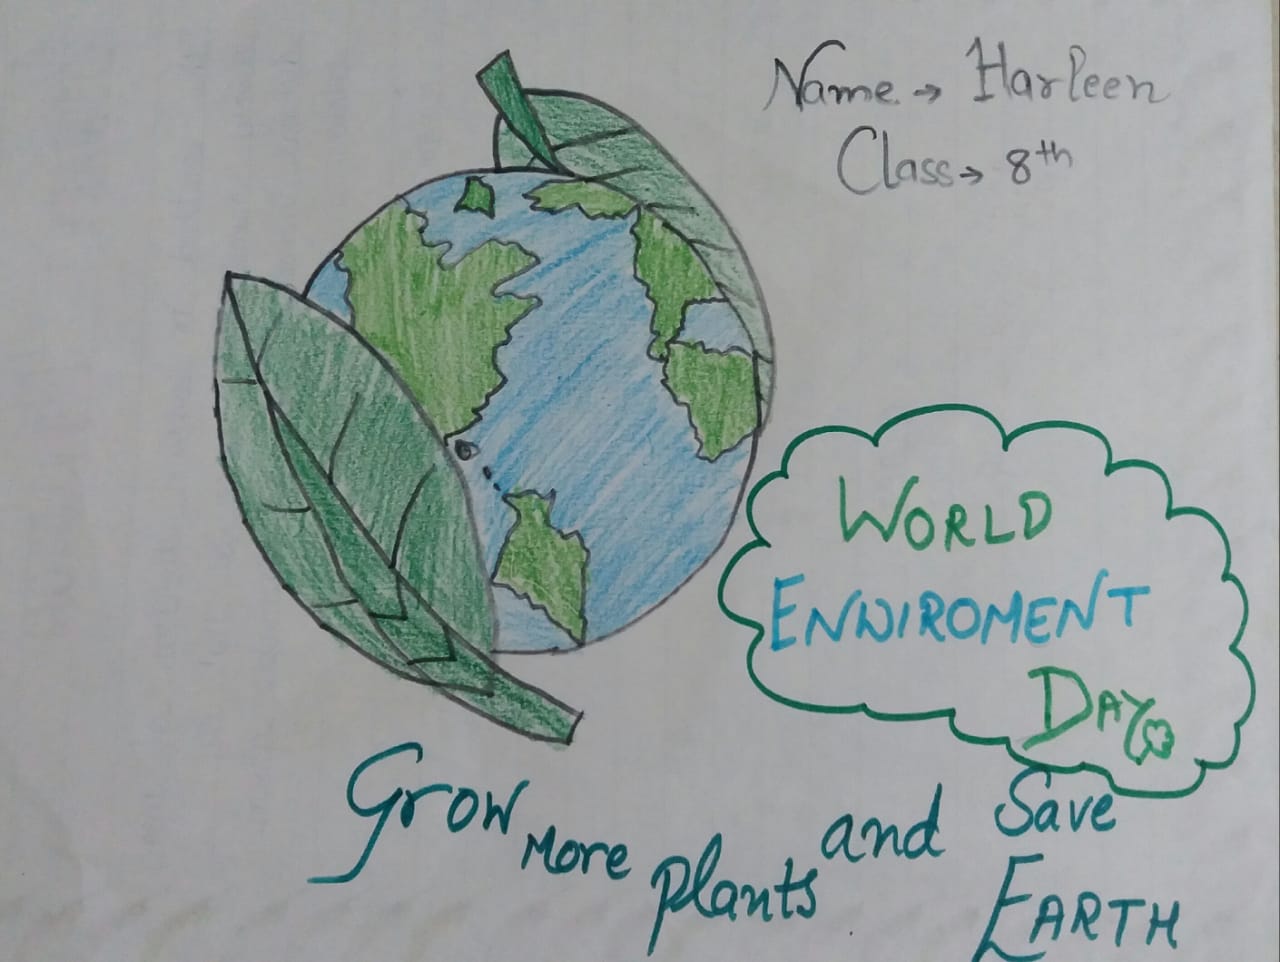 Name → Harleen
Class → 8th
WORLD
ENWIROMENT
DAY
Grow more plants and Save
EARTH